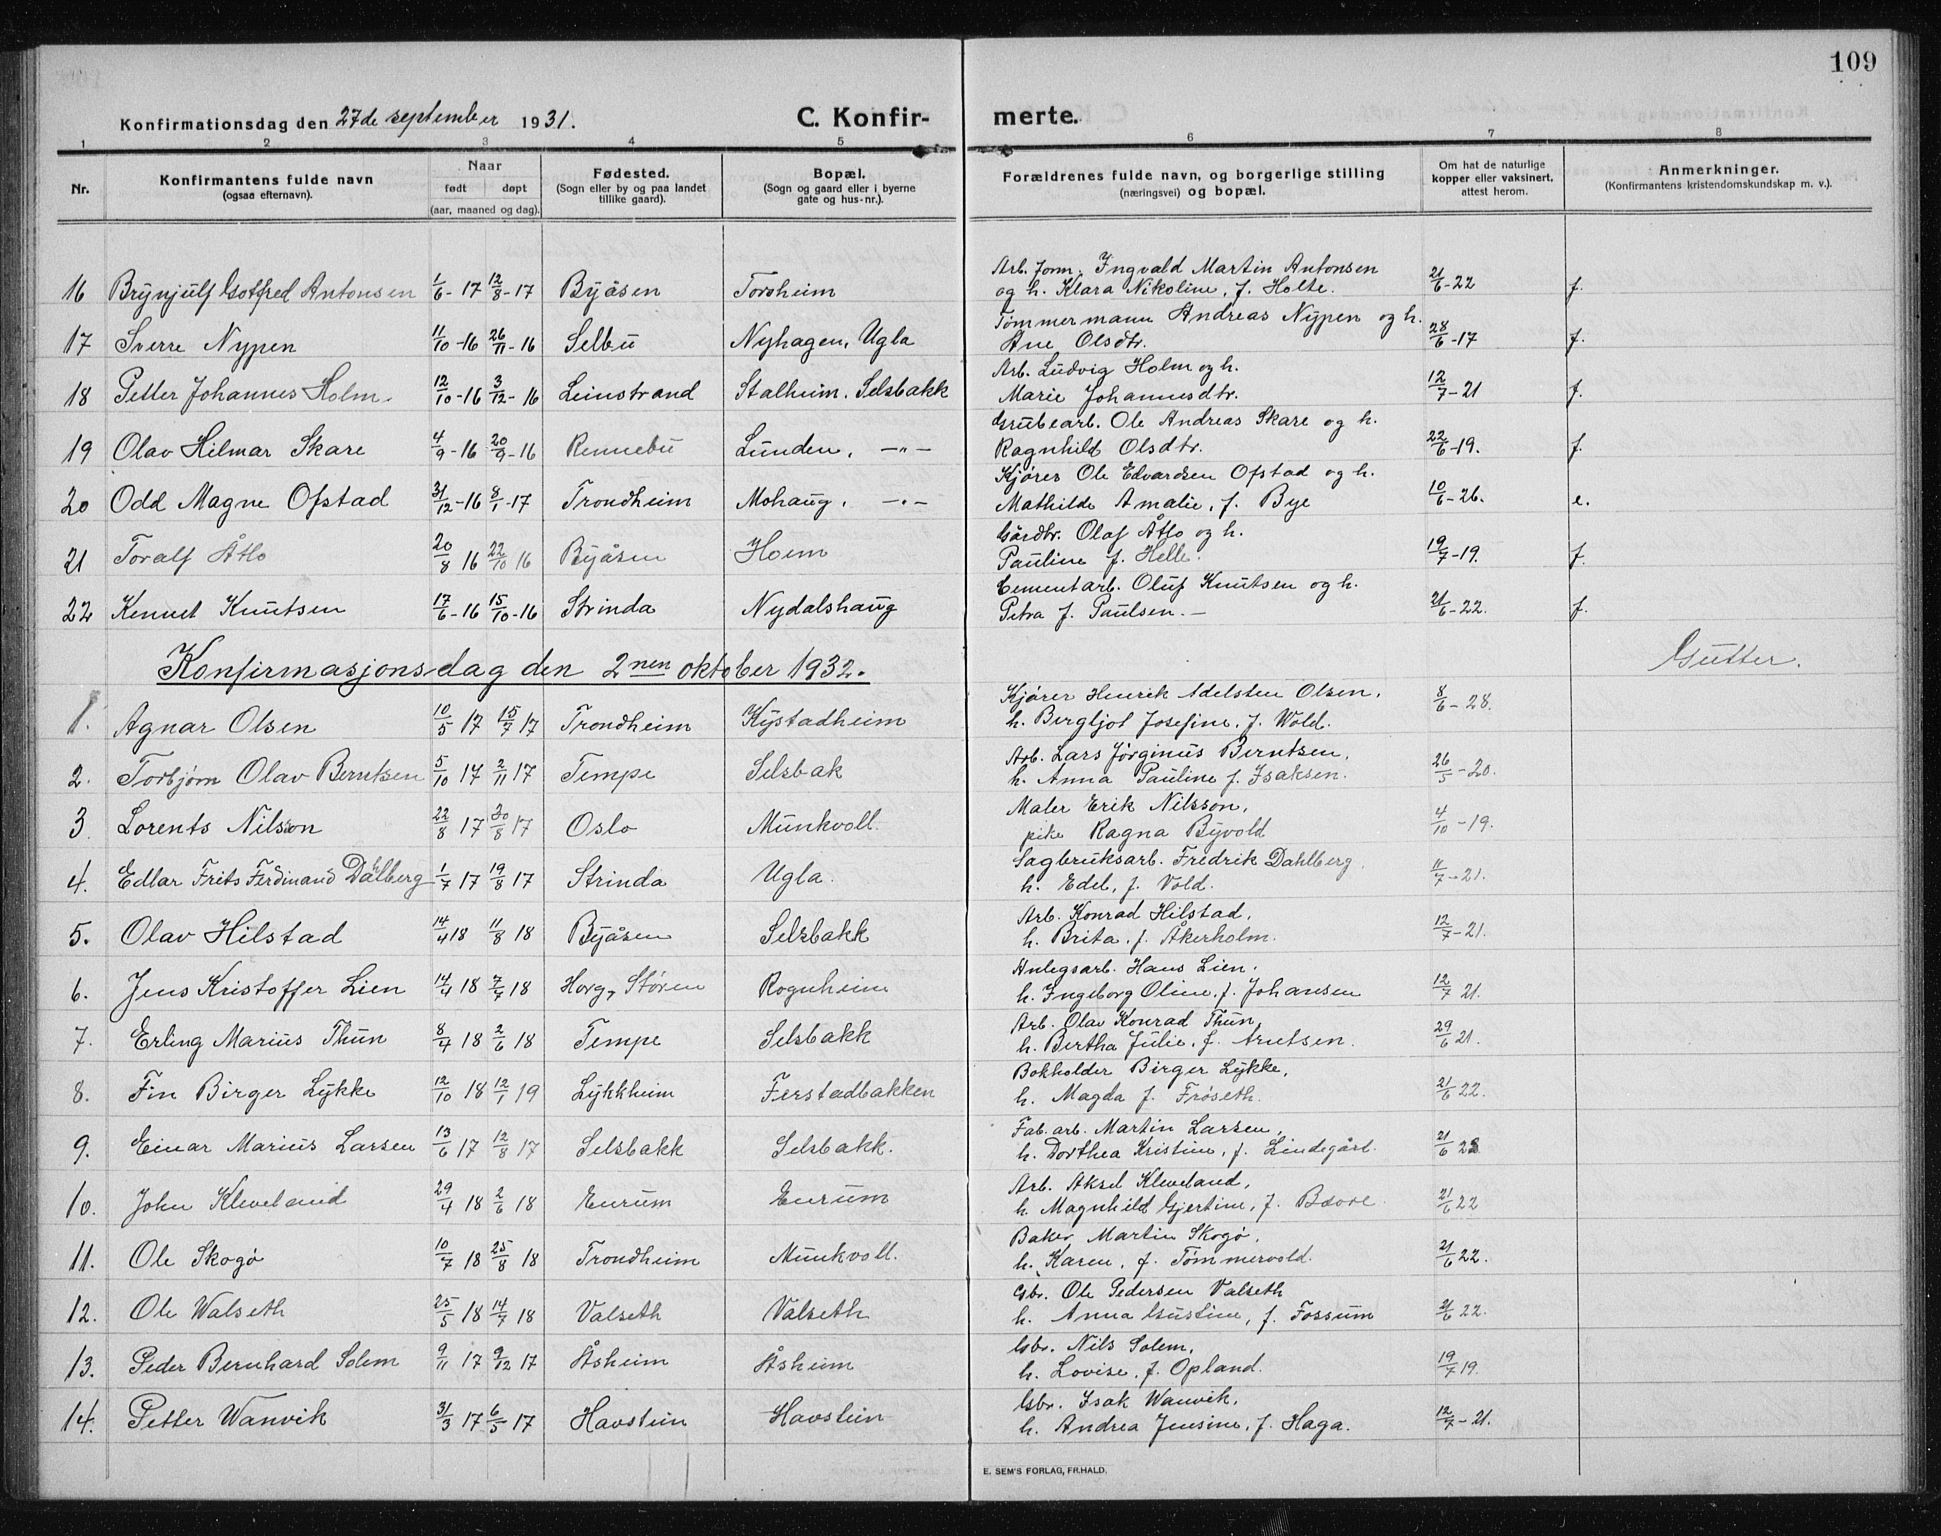 109
Konfirmationsdag den 27de september 1931.
C. Konfir-
merte.
1 2 3 4 5 6 7 8
Nr.
Konfirmantens fulde navn
(ogsaa efternavn).
Naar
født døpt
(aar, maaned og dag).
Fødested.
(Sogn eller by og paa landet
tillike gaard).
Bopæl.
(Sogn og gaard eller i byerne
gate og hus-nr.).
Forældrenes fulde navn, og borgerlige stilling
(næringsvei) og bopæl.
Om hat de naturlige
kopper eller vaksinert,
attest herom.
Anmerkninger.
(Konfirmantens kristendomskundskap m. v.).
Arb. form. Ingvald Martin Antonsen
16 Brynjulf Gotfred Antonsen 1/6-17 12/8-17 Byåsen Torsheim og h. Klara Nikoline, f. Holte. 21/6-22 f.
Tømmermann Andreas Nypen og h.
17 Sverre Nypen 11/10-16 26/11-16 Selbu Nyhagen, Ugla Ane Olsdtr. 28/6-17 f.
Arb. Ludvig Holm og h.
18 Petter Johannes Holm. 12/10-16 3/12-16 Leinstrand Stalheim, Selsbakk Marie Johannesdtr. 12/7-21 f.
Grubearb. Ole Andreas Skare og h.
19 Olav Hilmar Skare 4/9-16 20/9-16 Rennebu Lunden, —"— Ragnhild Olsdtr. 22/6-19. f.
Kjører Ole Edvardsen Ofstad og h.
20 Odd Magne Ofstad 31/12-16 8/1-17 Trondheim Mohaug, —"— Mathilde Amalie, f. Bye 10/6-26. e.
Gårdbr. Olaf Åtlo og h.
21 Toralf Åtlo 20/8 16 22/10 16 Byåsen Hoem Pauline f. Helle. 19/7-19. f.
Cementarb. Oluf Knutsen og h.
22 Kennet Knutsen 17/6-16 15/10-16 Strinda Nydalshaug Petra f. Paulsen. — 21/6-22. f.
Konfirmasjonsdag den 2nen oktober 1932. Gutter.
Kjører Henrik Adelsten Olsen,
1. Agnar Olsen 10/5 17 15/7 17 Trondheim Kystadheim h. Bergljot Josefine, f. Wold. 8/6-28.
Arb. Lars Jørginus Berntsen,
2. Torbjørn Olav Berntsen 5/10 17 2/11 17 Tempe Selsbak h. Anna Pauline f. Isaksen. 26/5-20.
Maler Erik Nilsson,
3. Lorents Nilsson 22/8 17 30/8 17 Oslo Munkvoll. pike Ragna Byvold 4/10-19.
Sagbruksarb. Fredrik Dahlberg,
4. Edlar Frits Ferdinand Dahlberg 1/7 17 19/8 17 Strinda Ugla. h. Edel, f. Vold. 11/7-21.
Arb. Konrad Hilstad,
5. Olav Hilstad 14/4 18 11/8 18 Byåsen Selsbakk h. Brita, f. Åkerholm. 12/7-21.
Anlegsarb. Hans Lien,
6. Jens Kristoffer Lien 14/4 18 7/7 18 Horg, Støren Rognheim h. Ingeborg Oline, f. Johansen 12/7 21.
Arb. Olav Konrad Thun,
7. Erling Marius Thun 8/4 18 2/6 18 Tempe Selsbakk h. Bertha Julie, f. Arntsen. 29/6 21.
Bokholder Birger Lykke,
8. Fin Birger Lykke 12/10 18 12/1 19 Lykkheim Ferstadbakken h. Magda f. Frøseth. 21/6 22.
Fab. arb. Martin Larsen,
9. Einar Marius Larsen 13/6 17 12/8 17 Selsbakk Selsbakk. h. Dorthea Kristine, f. Lindegård. 21/6 22
Arb. Aksel Kleveland,
10. John Kleveland 29/4 18 2/6 18 Enrum Enrum h. Magnhild Gjertine, f. Bævre. 21/6 22
Baker Martin Skogø,
11. Ole Skogø 10/7 18 25/8 18 Trondheim Munkvoll. h. Karen, f. Tømmervold. 21/6 22.
Gbr. Ole Pedersen Valseth
12. Ole Walseth 25/5 18 14/7 18 Valseth Valseth h. Anna Gustine, f. Fossum 21/6 22.
Gbr. Nils Solem,
13. Peder Bernhard Solem 9/11 17 9/12 17 Åsheim Åsheim h. Lovise, f. Opland. 19/7 19.
Gbr. Isak Wanvik,
14. Petter Wanvik 31/3 17 6/5 17 Havstein Havstein h. Andrea Jensine, f. Haga. 12/7-21.
E. SEM'S FORLAG, FR.HALD.